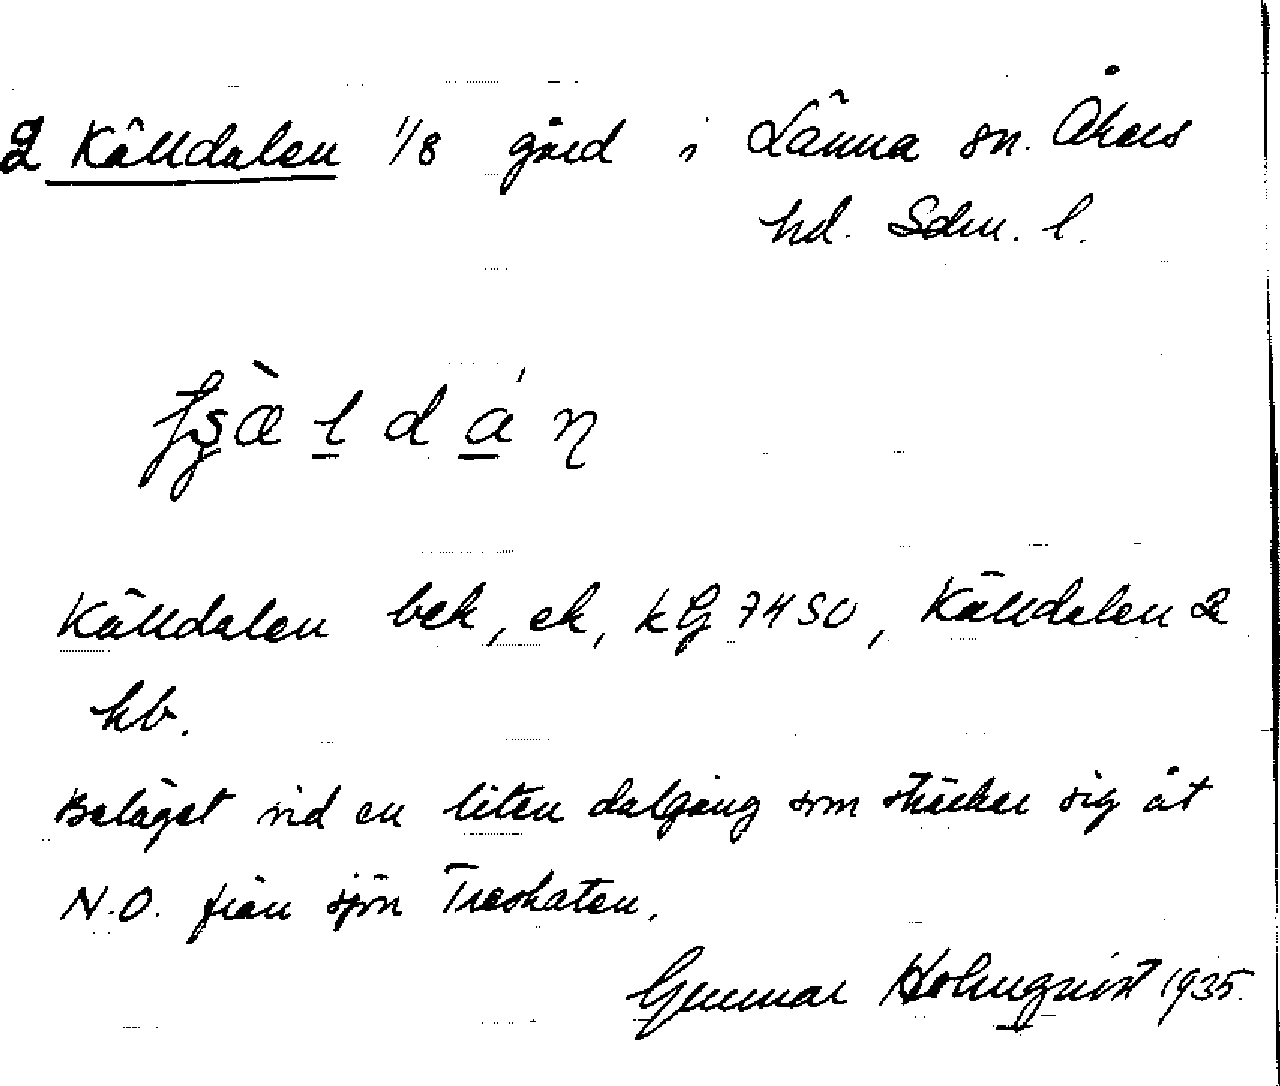 2 Källdalen 1/8 gård i Länna sn. Åkers
hd. Sdm. l.
Källdalen bek, ek, kG 74 SO, Källdalen 2
hb.
Beläget vid en liten dalgång som sträcker sig åt
N.O. från sjön Treskaten.
Gunnar Holmqvist 1935.